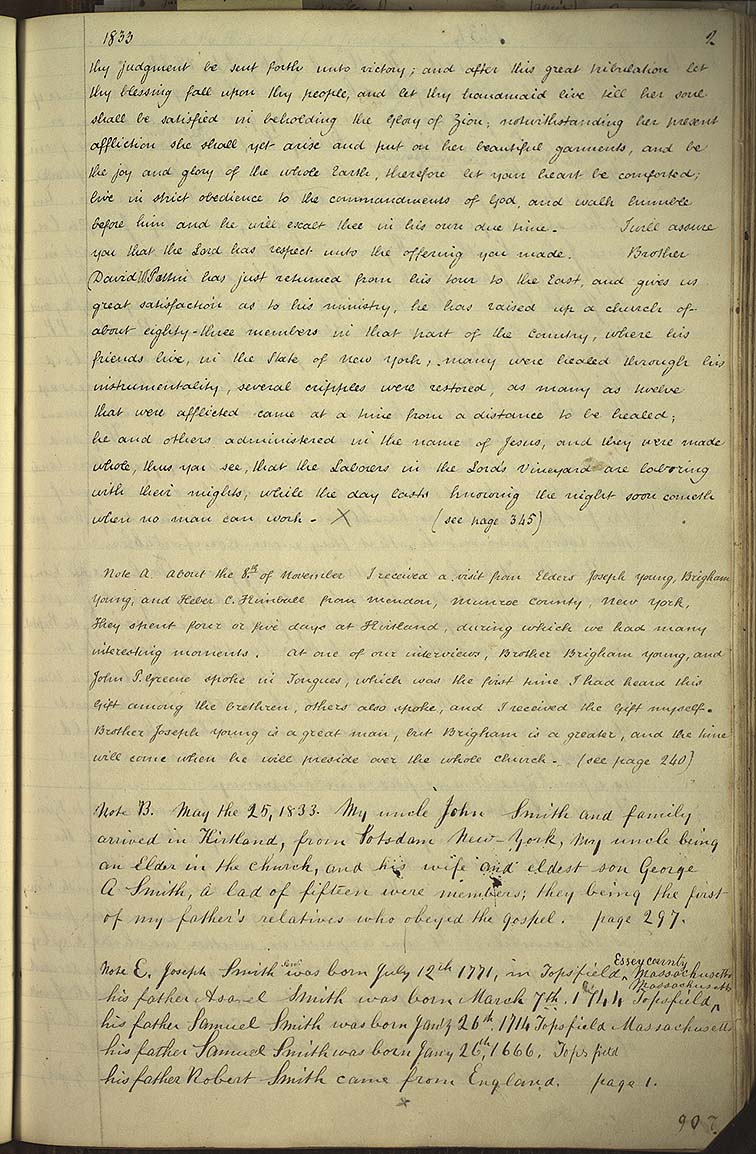 1833 2
thy judgment be sent forth unto victory; and after this great tribulation let
thy blessing fall upon thy people, and let thy handmaid live till her soul
shall be satisfied in beholding the glory of Zion; notwithstanding her present
affliction she shall yet arise and put on her beautiful garments, and be
the joy and glory of the whole Earth, therefore let your heart be comforted;
live in strict obedience to the commandments of God, and walk humble
before him and he will exalt thee in his own due time. I will assure
you that the Lord has respect unto the offering you made. Brother
David W Patten has just returned from his tour to the East, and gives us
great satisfaction as to his ministry, he has raised up a church of
about eighty-three members in that part of the Country, where his
friends live, in the State of New York; many were healed through his
instrumentality, several cripples were restored, as many as twelve
that were afflicted came at a time from a distance to be healed;
he and others administered in the name of Jesus, and they were made
whole, thus you see, that the Laborers in the Lord's Vineyard are laboring
with their mights, while the day lasts knowing the night soon cometh
when no man can work. X (see page 345)
Note A. about the 8th. of November I received a visit from Elders Joseph Young, Brigham
Young, and Heber C. Kimball from Mendon, Munroe County, New York,
They spent four or five days at Kirtland, during which we had many
interesting moments. At one of our interviews, Brother Brigham Young, and
John P. Greene spoke in Tongues, which was the first time I had heard this
Gift among the brethren, others also spoke, and I received the Gift myself.
Brother Joseph Young is a great man, but Brigham is a greater, and the time
will come when he will preside over the whole church. (see page 240)
Note B. May the 25, 1833. My uncle John Smith and family
arrived in Kirtland, from Potsdam New-York, my uncle being
an elder in the church, and his wife and eldest son George
A Smith, a lad of fifteen were members; they being the first
of my father's relatives who obeyed the gospel. page 297.
Note E. Joseph Smith Senr was born July 12th 1771, in Topsfield, Essex county Massachusetts
his father Asael Smith was born March 7th. 1744 Topsfield, Massachusetts
his father Samuel Smith was born Jany 26th. 1714 Topsfield Massachusetts
his father Samuel Smith was born Jany 26th, 1666. Topsfield
his father Robert Smith came from England. page 1.
x
907